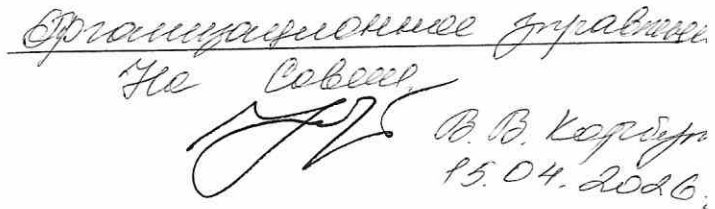 Организационное управлен
На Совет
В. В. 
15.04.2026